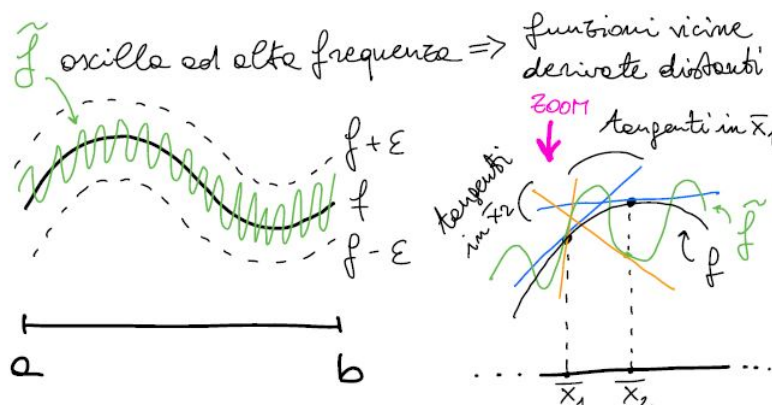 f̃ oscilla ad alta frequenza => funzioni vicine
derivate distanti
ZOOM
tangenti in x̄₁
tangenti
in x̄₂
f + ε
f
f - ε
f̃
f
a
b
... x̄₁ x̄₂ ...